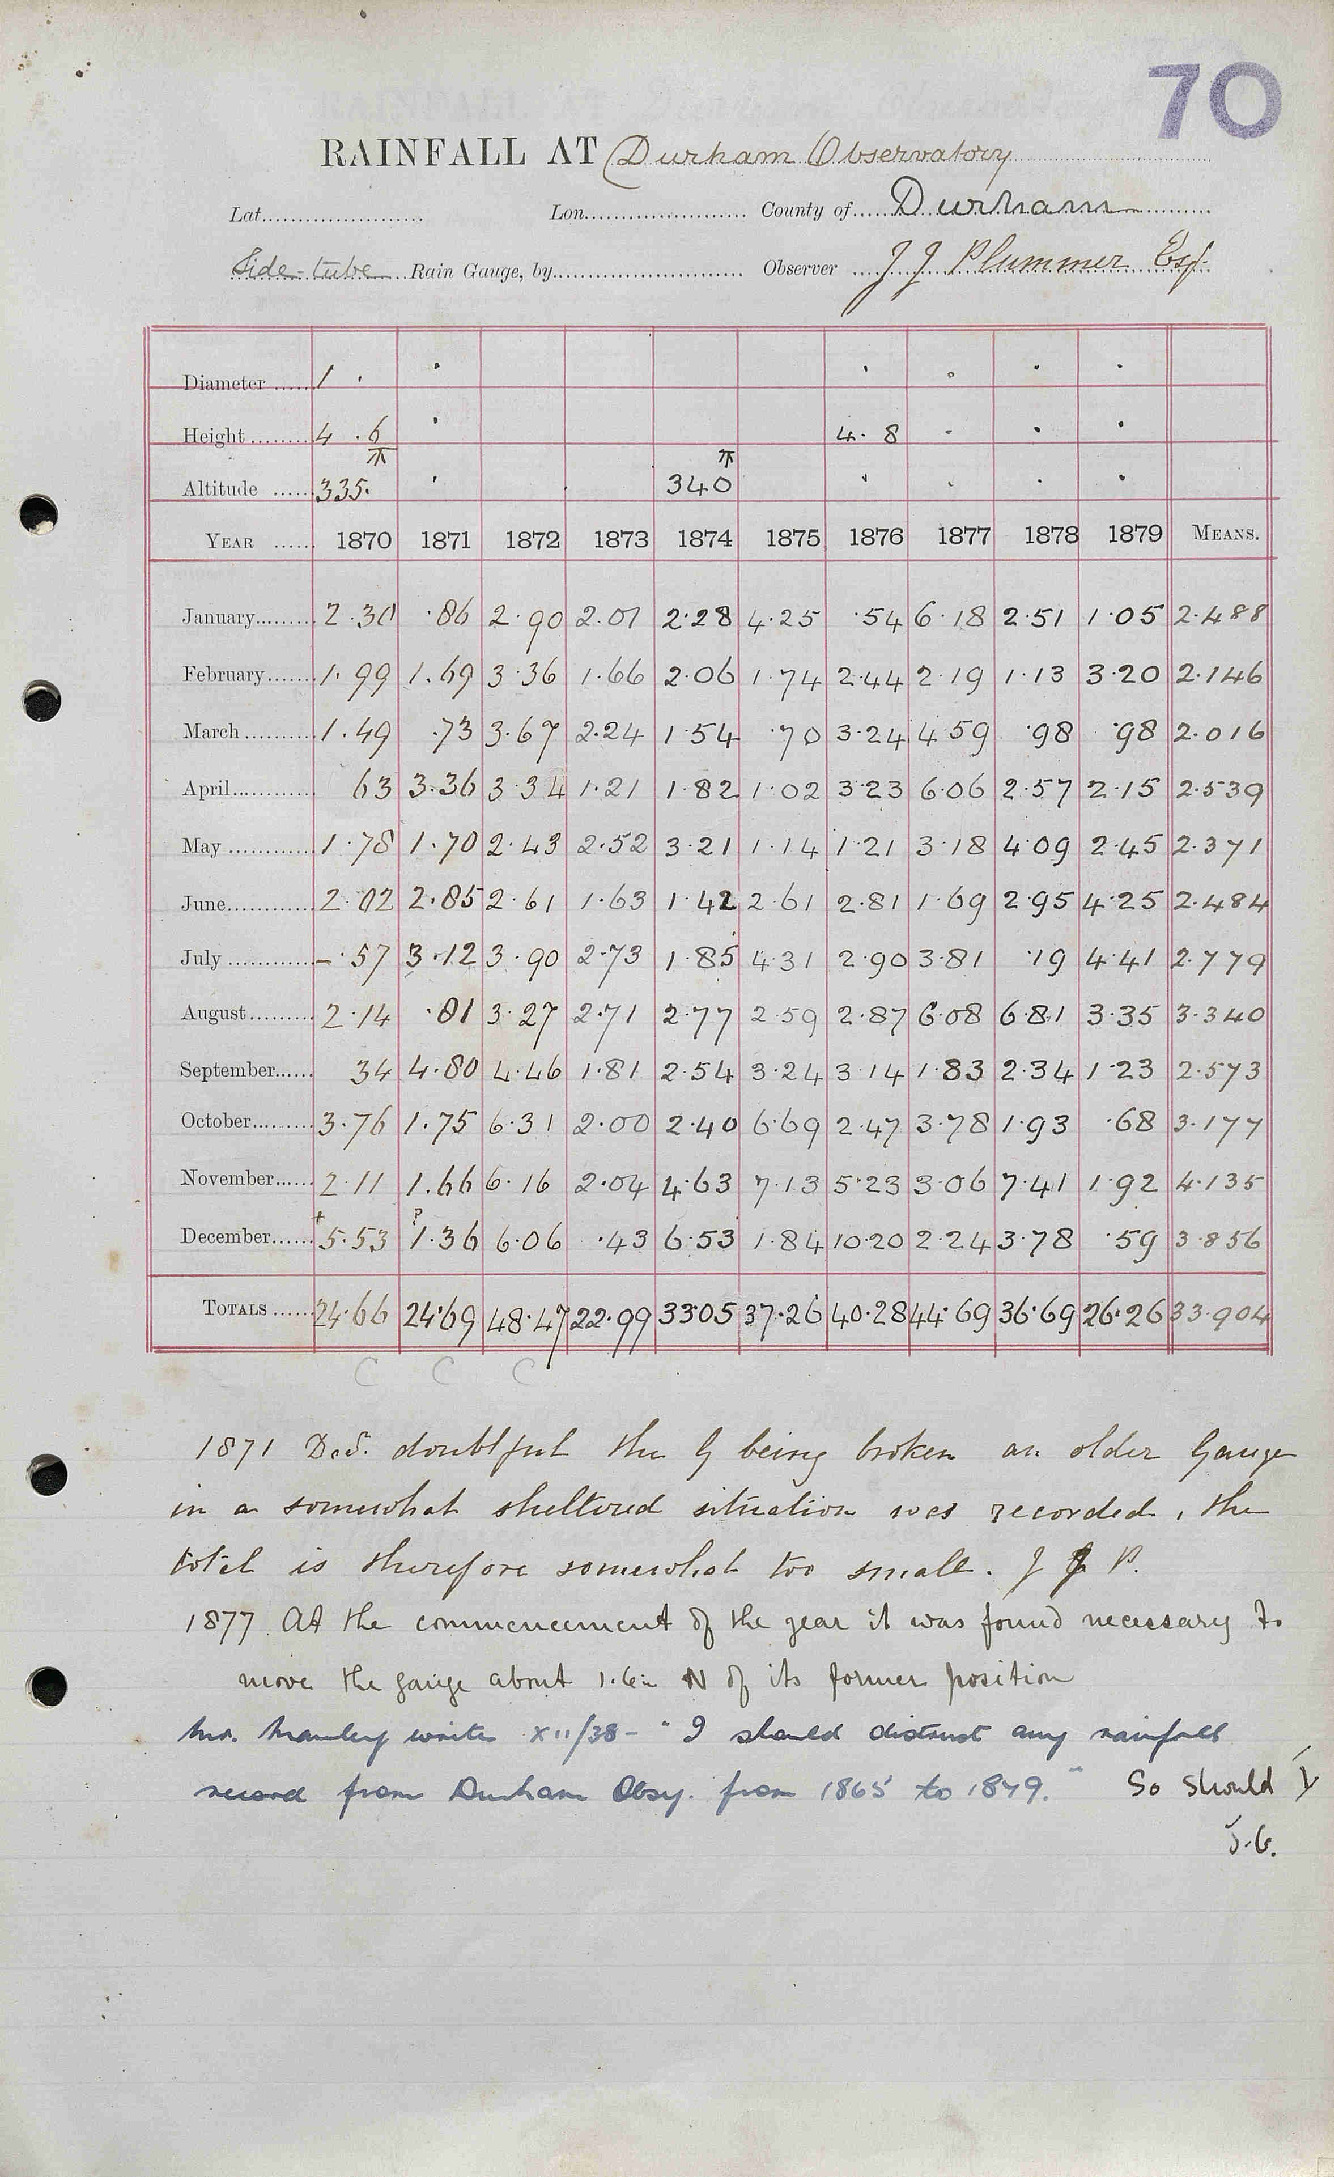 70
RAINFALL AT Durham Observatory
Lat. Lon. County of Durham
Side-tube Rain Gauge, by Observer J J Plummer Esq.
Diameter 1 .
Height 4 . 6 4. 8
Altitude 335. 340
YEAR 1870 1871 1872 1873 1874 1875 1876 1877 1878 1879 MEANS.
January 2.30 .86 2.90 2.01 2.28 4.25 .54 6.18 2.51 1.05 2.488
February 1.99 1.69 3.36 1.66 2.06 1.74 2.44 2.19 1.13 3.20 2.146
March 1.49 .73 3.67 2.24 1.54 .70 3.24 4.59 .98 .98 2.016
April 63 3.36 3.34 1.21 1.82 1.02 3.23 6.06 2.57 2.15 2.539
May 1.78 1.70 2.43 2.52 3.21 1.14 1.21 3.18 4.09 2.45 2.371
June 2.02 2.85 2.61 1.63 1.42 2.61 2.81 1.69 2.95 4.25 2.484
July -.57 3.12 3.90 2.73 1.85 4.31 2.90 3.81 .19 4.41 2.779
August 2.14 .81 3.27 2.71 2.77 2.59 2.87 6.08 6.81 3.35 3.340
September 34 4.80 4.46 1.81 2.54 3.24 3.14 1.83 2.34 1.23 2.573
October 3.76 1.75 6.31 2.00 2.40 6.69 2.47 3.78 1.93 .68 3.177
November 2.11 1.66 6.16 2.04 4.63 7.13 5.23 3.06 7.41 1.92 4.135
December +5.53 ?1.36 6.06 .43 6.53 1.84 10.20 2.24 3.78 .59 3.856
TOTALS 24.66 24.69 48.47 22.99 33.05 37.26 40.28 44.69 36.69 26.26 33.904
C C C
1871 Dec. doubtful the G being broken an older Gauge
in a somewhat sheltered situation was recorded, the
total is therefore somewhat too small. J J P.
1877. At the commencement of the year it was found necessary to
move the gauge about 1.6in N of its former position
Mr. Manley writes XII/38 - "I should distrust any rainfall
record from Durham Obsy. from 1865 to 1879." So should I
J.G.